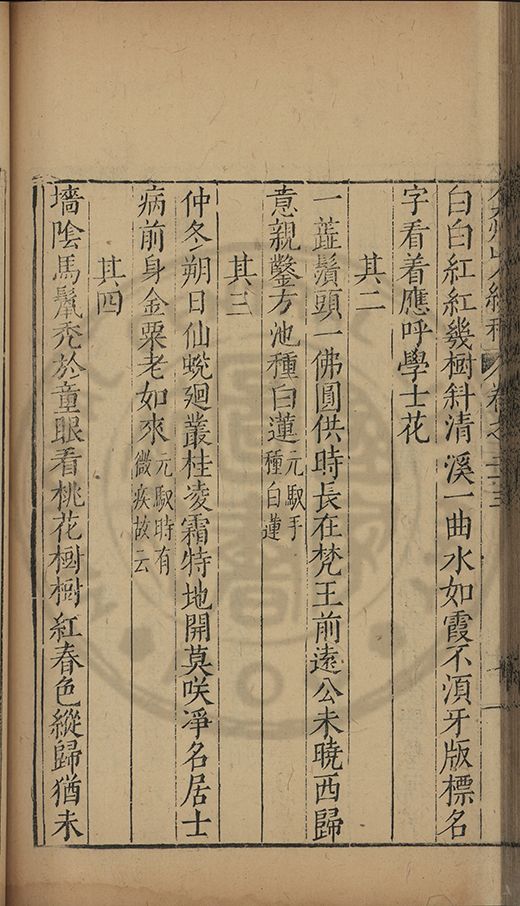 白白紅紅幾樹斜清溪一曲水如霞不湏牙版標名
字看着應呼學士花
其二
一蓝鬚頭一佛圓供時長在梵王前遠公未曉西歸
意親鑿方池種白蓮元馭手
種白蓮
其三
仲冬朔日仙蛻廻叢桂凌霜特地開莫咲淨名居士
病前身金粟老如來元馭時有
微疾故云
其四
墻陰馬鬣禿於童眼看桃花樹樹紅春色縱歸猶未